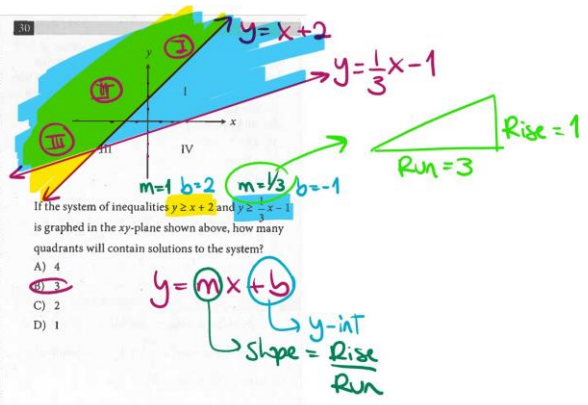 30
y = x + 2
y = 1/3 x - 1
I
II
III
y
I
x
III
IV
Rise = 1
Run = 3
m=1 b=2 m=1/3 b=-1
If the system of inequalities y ≥ x + 2 and y ≥ 1/3 x - 1
is graphed in the xy-plane shown above, how many
quadrants will contain solutions to the system?
A) 4
B) 3
C) 2
D) 1
y = mx + b
y-int
Slope = Rise
Run